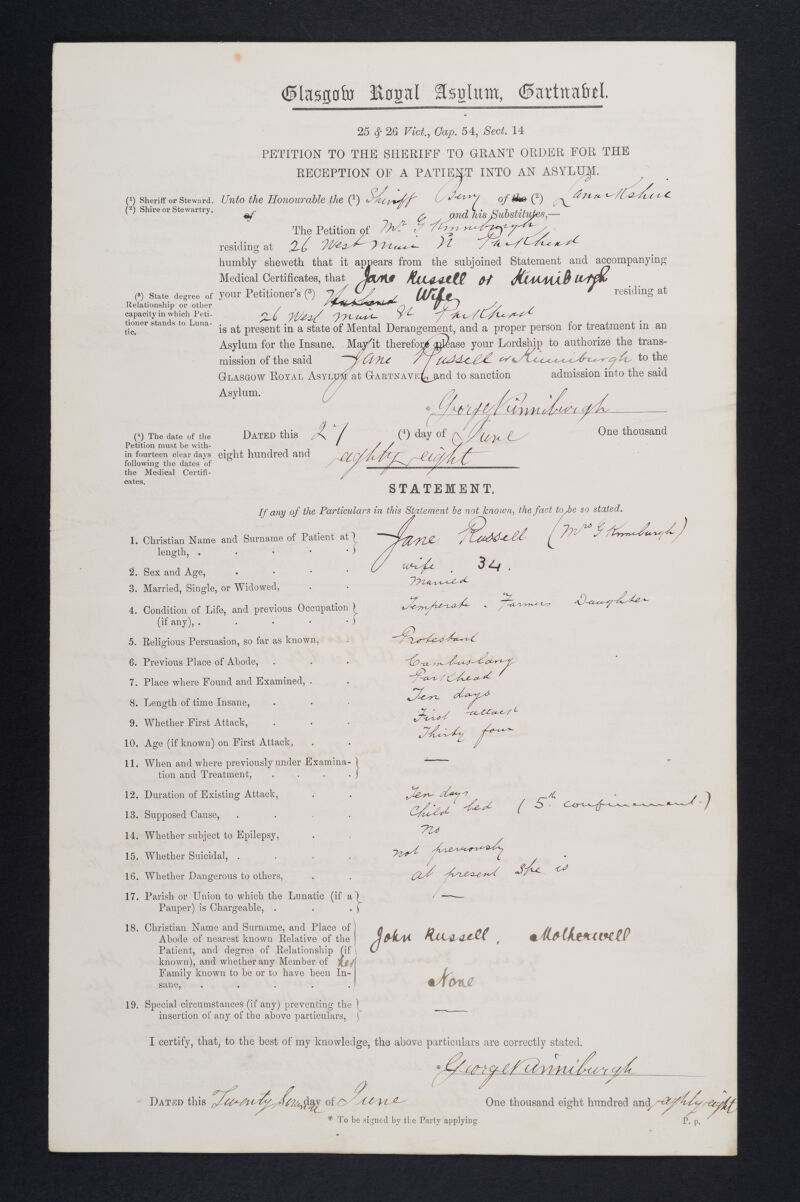 Glasgow Royal Asylum, Gartnavel.
25 & 26 Vict., Cap. 54, Sect. 14
PETITION TO THE SHERIFF TO GRANT ORDER FOR THE
RECEPTION OF A PATIENT INTO AN ASYLUM.
(1) Sheriff or Steward.
(2) Shire or Stewartry.
Unto the Honourable the (1) Sheriff Berry of the (2) Lanarkshire
of and his Substitutes,—
The Petition of Mr G Kinniburgh
residing at 26 West Muir St Parkhead
humbly sheweth that it appears from the subjoined Statement and accompanying
Medical Certificates, that Jane Russell or Kinniburgh
(3) State degree of
Relationship or other
capacity in which Peti-
tioner stands to Luna-
tic.
your Petitioner's (3) Husband Wife residing at
26 West Muir St Parkhead
is at present in a state of Mental Derangement, and a proper person for treatment in an
Asylum for the Insane. May it therefore please your Lordship to authorize the trans-
mission of the said Jane Russell or Kinniburgh to the
GLASGOW ROYAL ASYLUM at GARTNAVEL, and to sanction admission into the said
Asylum.
* George Kinniburgh
(4) The date of the
Petition must be with-
in fourteen clear days
following the dates of
the Medical Certifi-
cates.
DATED this 27 (4) day of June One thousand
eight hundred and eighty eight
STATEMENT.
If any of the Particulars in this Statement be not known, the fact to be so stated.
1. Christian Name and Surname of Patient at
length, . . . . . Jane Russell (Mrs G Kinniburgh)
2. Sex and Age, . . . . wife . 34.
3. Married, Single, or Widowed, . . Married
4. Condition of Life, and previous Occupation
(if any), . . . . . Temperate . Farmers Daughter
5. Religious Persuasion, so far as known, . . Protestant
6. Previous Place of Abode, . . . Cambuslang
7. Place where Found and Examined, . . Parkhead
8. Length of time Insane, . . . Ten days
9. Whether First Attack, . . . First attack
10. Age (if known) on First Attack, . . Thirty four
11. When and where previously under Examina-
tion and Treatment, . . . . —
12. Duration of Existing Attack, . . Ten days
13. Supposed Cause, . . . . Child bed (5th confinement.)
14. Whether subject to Epilepsy, . . No
15. Whether Suicidal, . . . . not previously
16. Whether Dangerous to others, . . at present she is
17. Parish or Union to which the Lunatic (if a
Pauper) is Chargeable, . . . —
18. Christian Name and Surname, and Place of
Abode of nearest known Relative of the
Patient, and degree of Relationship (if
known), and whether any Member of her
Family known to be or to have been In-
sane, . . . . .
John Russell, Motherwell
None
19. Special circumstances (if any) preventing the
insertion of any of the above particulars, —
I certify, that, to the best of my knowledge, the above particulars are correctly stated.
* George Kinniburgh
DATED this Twenty Seven day of June One thousand eight hundred and eighty eight
* To be signed by the Party applying.
P. p.